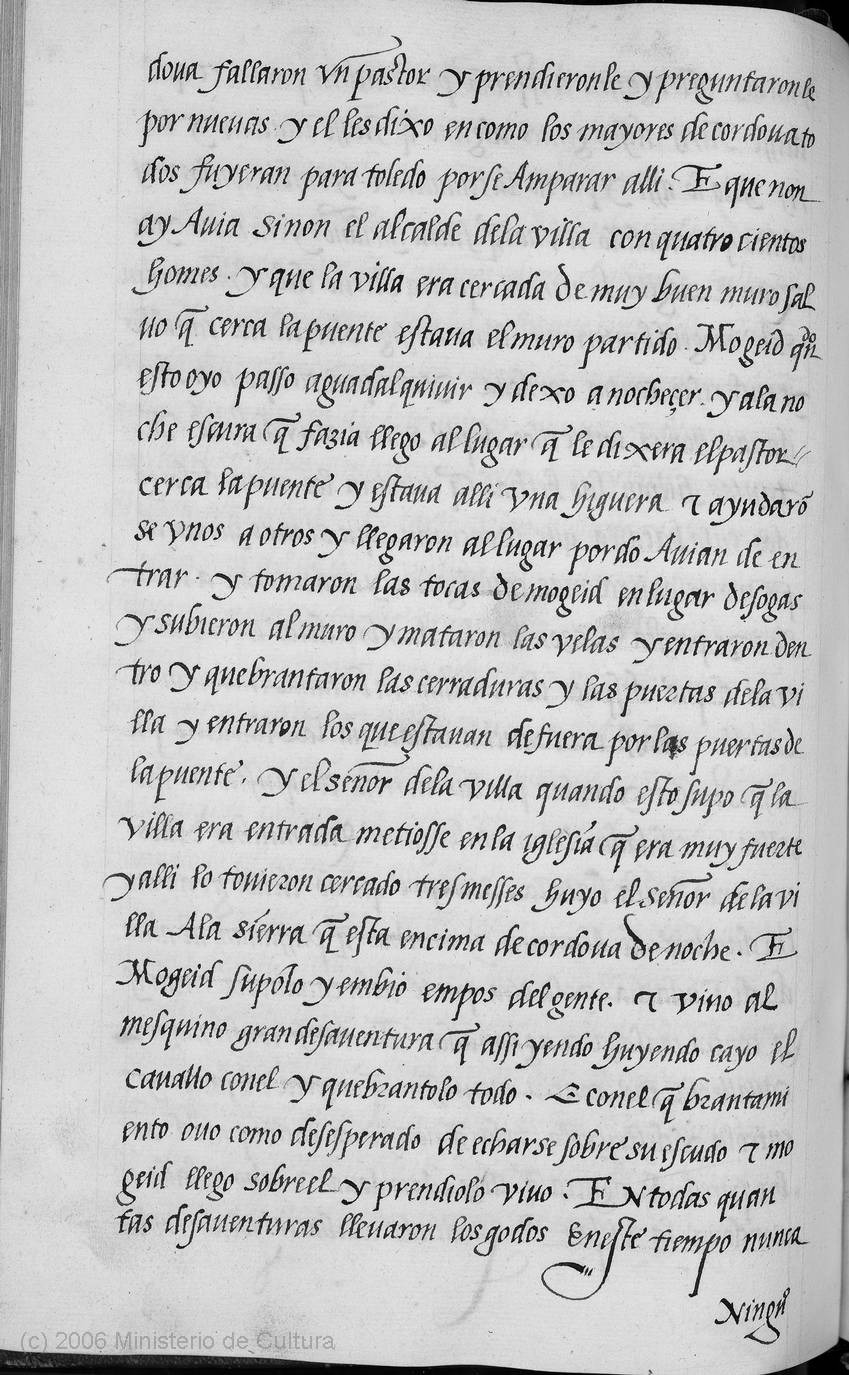 doua fallaron vn pastor y prendieronle y preguntaronle
por nuevas y el les dixo en como los mayores de cordoua to
dos fuyeran para toledo por se Amparar alli. E que non
ay Auia sinon el alcalde dela villa con quatro cientos
homes. y que la villa era cercada de muy buen muro sal
uo q̃ cerca la puente estaua el muro partido. Mogeid qñdo
esto oyo passo aguadalquivir y dexo anocheçer. y ala no
che escura q̃ fazia llego al lugar q̃ le dixera el pastor //
cerca la puente y estaua alli vna higuera ⁊ ayudarõ
se vnos a otros y llegaron al lugar por do Auian de en
trar. y tomaron las tocas de mogeid en lugar de sogas
y subieron al muro y mataron las velas y entraron den
tro y quebrantaron las cerraduras y las puertas dela vi
lla y entraron los que estauan de fuera por las puertas de
la puente. y el señor dela villa quando esto supo q̃ la
villa era entrada metiosse en la iglesia q̃ era muy fuerte
y alli lo touieron cercado tres messes huyo el señor dela vi
lla Ala sierra q̃ esta encima de cordoua de noche. E
Mogeid supolo y embio empos del gente. ⁊ vino al
mesquino gran desauentura q̃ assi yendo huyendo cayo el
cauallo con el y quebrantolo todo. E con el q̃brantami
ento ouo como desesperado de echarse sobre su escudo ⁊ mo
geid llego sobre el y prendiolo vivo. EN todas quan
tas desauenturas lleuaron los godos En este tiempo nunca
Ningũo
(c) 2006 Ministerio de Cultura